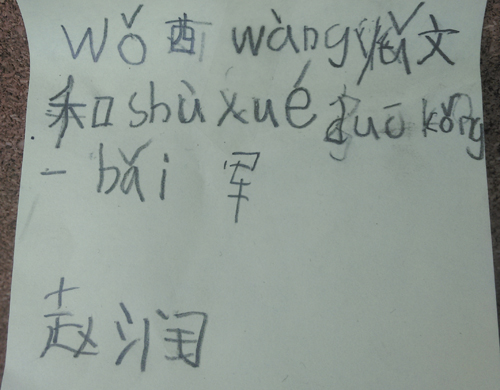 wǒ 西 wàng 文
和 shù xué duō kǒng
一 bǎi 军
赵润